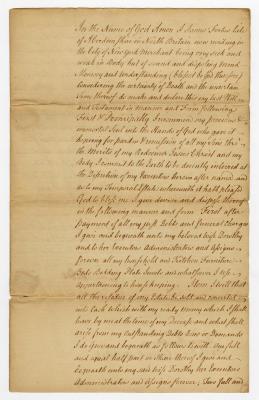 In the Name of God Amen I James Forbes late
of Aberdeen Shire in North Britain now residing in
the City of New York Merchant being very sick and
weak in Body but of sound and disposing mind
Memory and understanding (blessed be God therefore)
Considering the certainty of Death and the uncertain
time thereof do make and declare this my last Will
and Testament in manner and Form following
First & Principally I recommend my precious &
immortal Soul into the Hands of God who gave it
hoping for pardon & remission of all my Sins thro'
the Merits of my Redeemer Jesus Christ and my
Body I commit to the Earth to be decently interred at
the Discretion of my Executrix herein after named and
as to my Temporal Estate wherewith it hath pleased
God to bless me I give devise and dispose thereof
in the following manner and form First after
payment of all my just Debts and funeral Charges
I give and bequeath unto my beloved Wife Dorothy
and to her Executors Administrators and Assigns
forever all my household and Kitchen Furniture
Beds Bedding Plate Jewels and whatsoever I use
appertaining to housekeeping. Item I will that
all the residue of my Estate be sold and converted
into Cash which with my ready money which I shall
have by me at the time of my Decease and what shall
arise from my outstanding Debts dues or Demands
I do give and bequeath as follows to wit. One full
and equal half part or Share thereof I give and
bequeath unto my said Wife Dorothy her Executors
Administrators and Assigns forever, Two full and